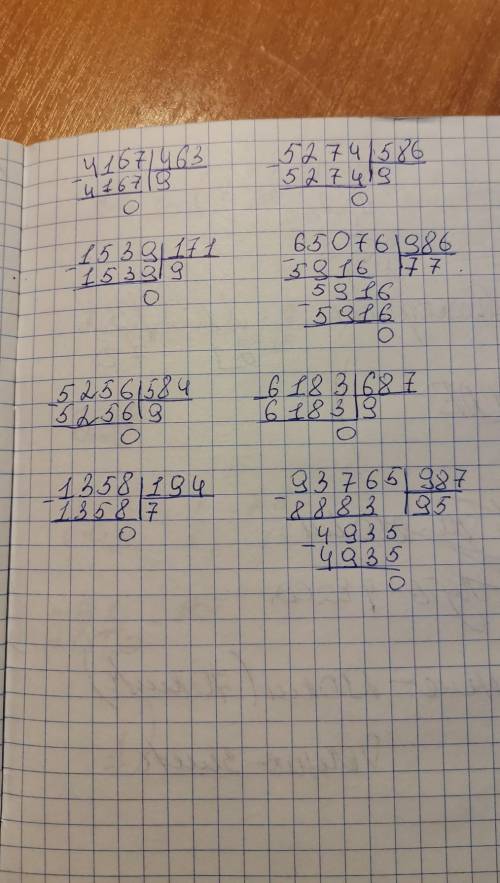 4167 463
- 4167 9
0
5274 586
- 5274 9
0
1539 171
- 1539 9
0
65076 986
- 5916 77
- 5916
5916
0
5256 584
- 5256 9
0
6183 687
- 6183 9
0
1358 194
- 1358 7
0
93765 987
- 8883 95
- 4935
4935
0